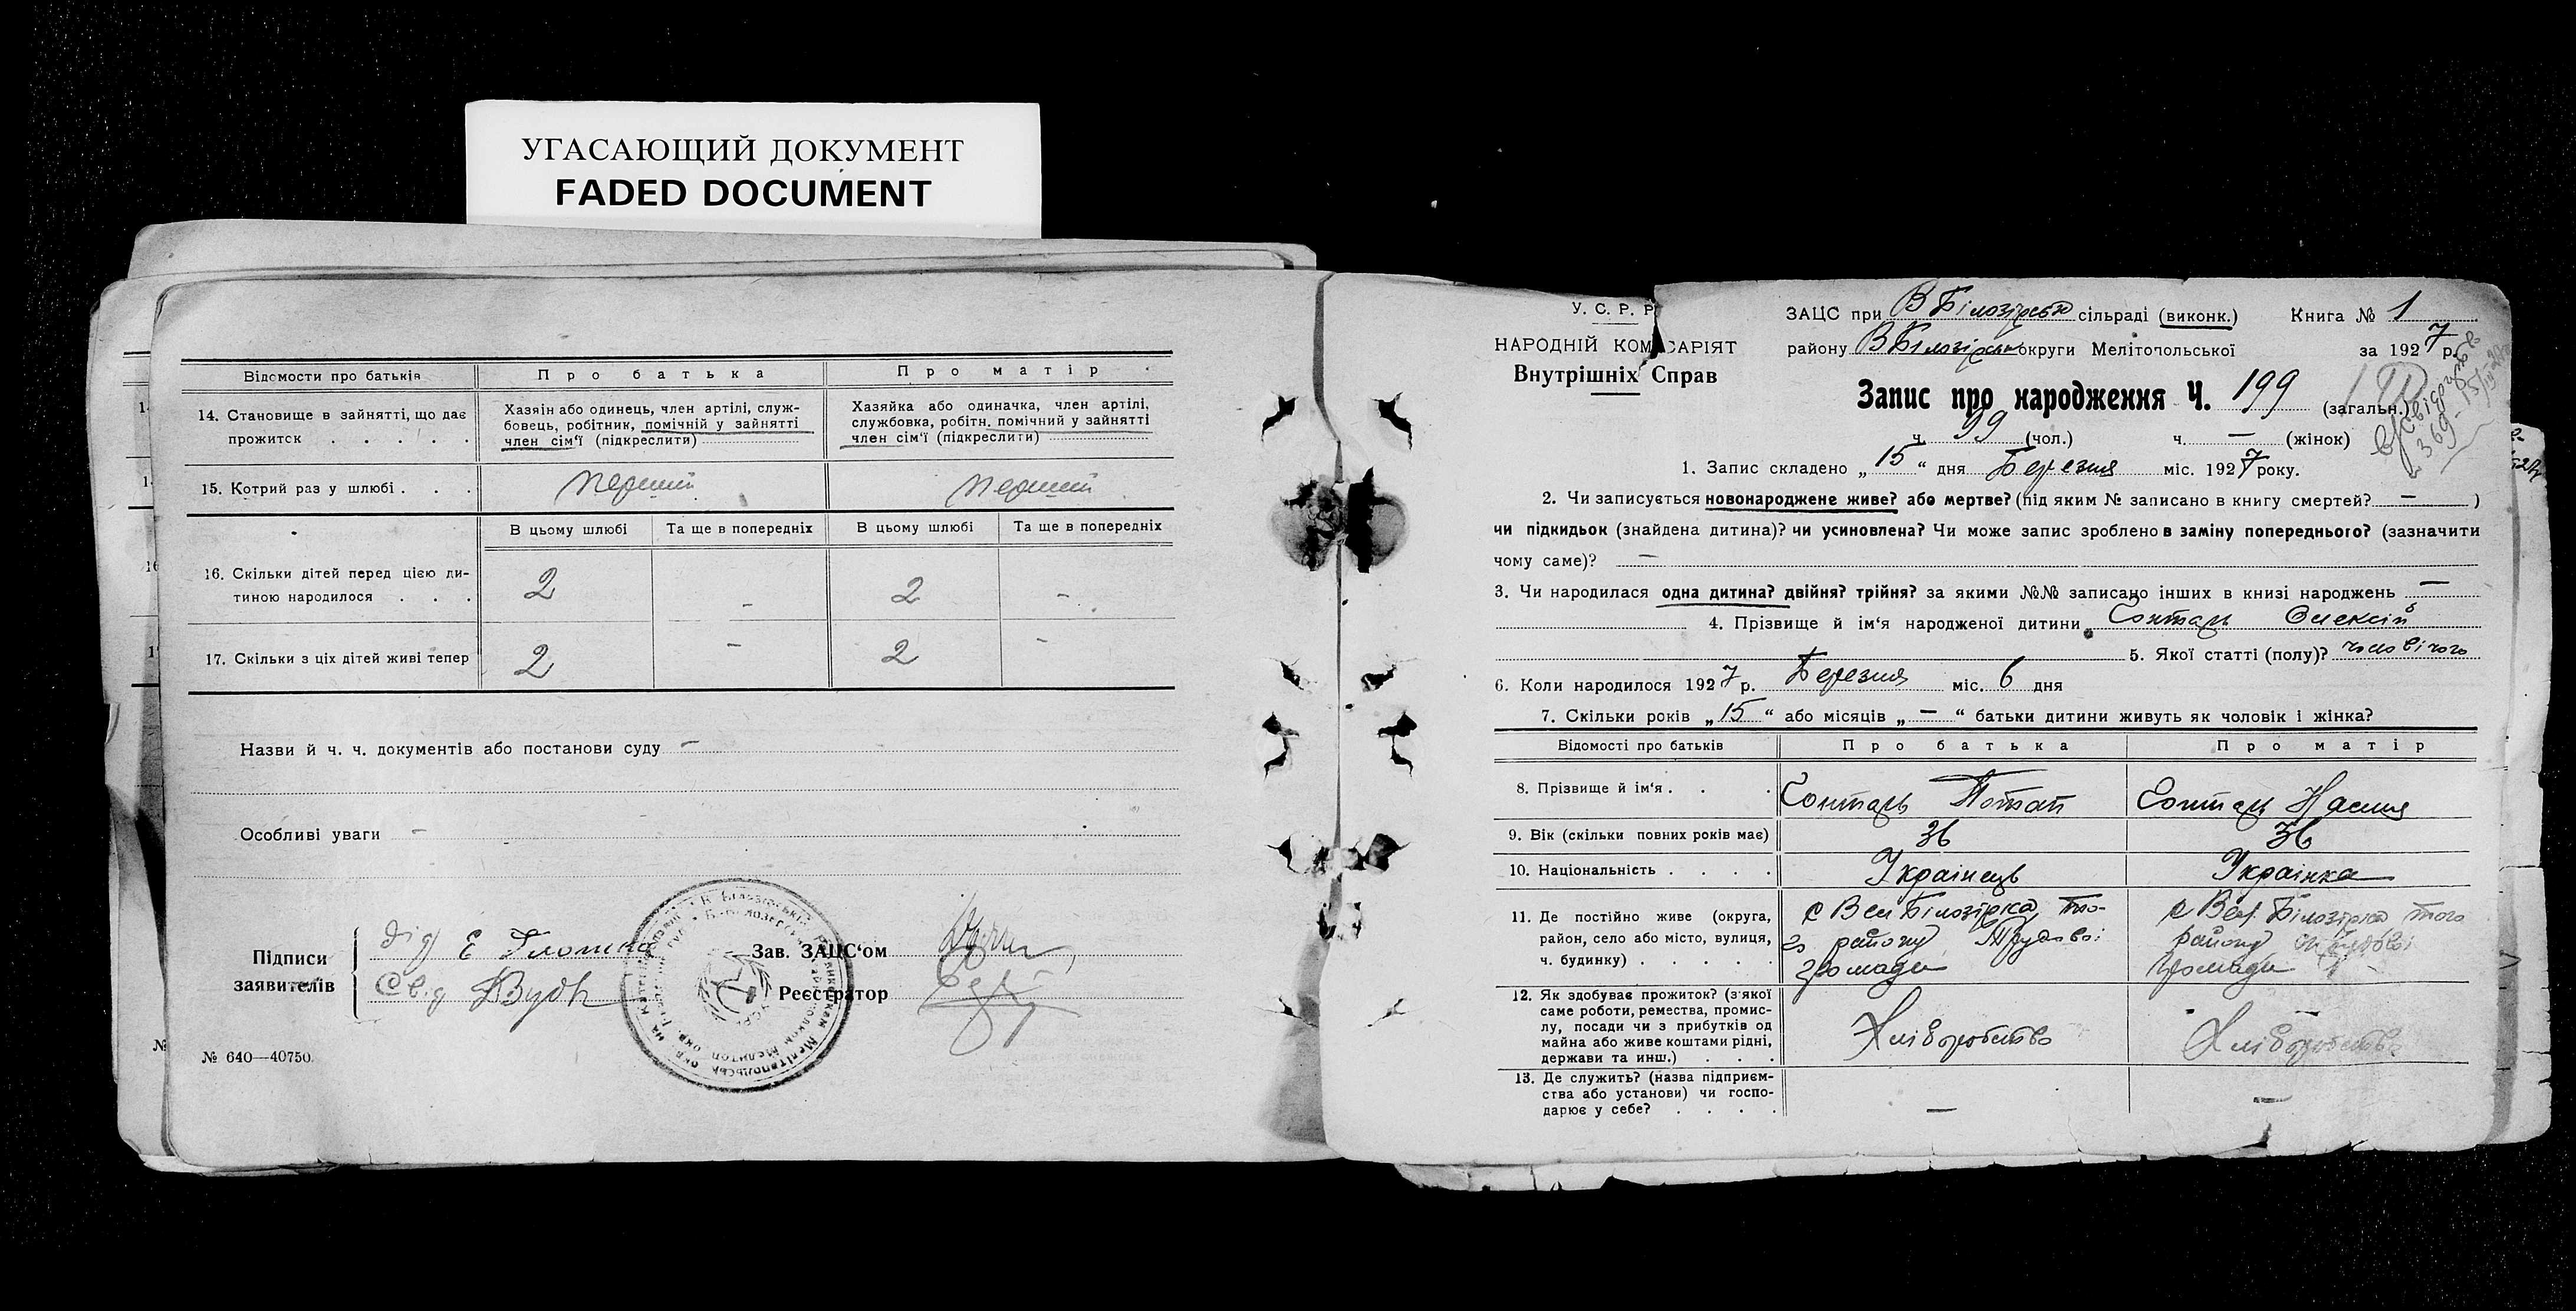 УГАСАЮЩИЙ ДОКУМЕНТ
FADED DOCUMENT
Відомости про батьків
Про батька
Про матір
14. Становище в зайнятті, що дає
прожиток . . . . .
Хазяін або одинець, член артілі, служ-
бовець, робітник, помічній у зайнятті
член сім'ї (підкреслити)
Хазяйка або одиначка, член артілі,
службовка, робітн. помічний у зайнятті
член сім'ї (підкреслити)
15. Котрий раз у шлюбі . . .
перший
перший
В цьому шлюбі
Та ще в попередніх
В цьому шлюбі
Та ще в попередніх
16. Скільки дітей перед цією ди-
тиною народилося . . .
2 - 2 -
17. Скільки з ціх дітей живі тепер
2 - 2 -
Назви й ч. ч. документів або постанови суду —
Особливі уваги —
Підписи
заявителів
дід Е
Свід
Зав. ЗАЦС'ом
Реєстратор
№ 640—40750.
У. С. Р. Р.
НАРОДНІЙ КОМІСАРІЯТ
Внутрішніх Справ
ЗАЦС при В Білозірській сільраді (виконк.) Книга № 1
району В Білозірськ округи Мелітопольської за 1927 р.
Запис про народження Ч. 199 (загальн.)
ч. 99 (чол.) ч. — (жінок)
1. Запис складено „15“ дня Березня міс. 1927 року.
2. Чи записується новонароджене живе? або мертве? (під яким № записано в книгу смертей? — )
чи підкидьок (знайдена дитина)? чи усиновлена? Чи може запис зроблено в заміну попереднього? (зазначити
чому саме)? —
3. Чи народилася одна дитина? двійня? трійня? за якими №№ записано інших в книзі народжень —
4. Прізвище й ім'я народженої дитини Сонтарь Олексій
5. Якої статті (полу)? чоловічого
6. Коли народилося 1927 р. Березня міс. 6 дня
7. Скільки років „15“ або місяців „—“ батьки дитини живуть як чоловік і жінка?
Відомості про батьків
Про батька
Про матір
8. Прізвище й ім'я . . .
Сонтарь Потап
Сонтарь Насия
9. Вік (скільки повних років має)
36
36
10. Національність . . . .
Українець
Українка
11. Де постійно живе (округа,
район, село або місто, вулиця,
ч. будинку) . . . . .
с Вел Білозірка, то-
го району Трудової
громади
с Вел. Білозірка того
району Трудової
громади
12. Як здобуває прожиток? (з якої
саме роботи, ремества, промис-
лу, посади чи з прибутків од
майна або живе коштами рідні,
держави та инш.) . . .
Хліборобство
Хліборобство
13. Де служить? (назва підприєм-
ства або установи) чи госпо-
дарює у себе? . . . .
—
—